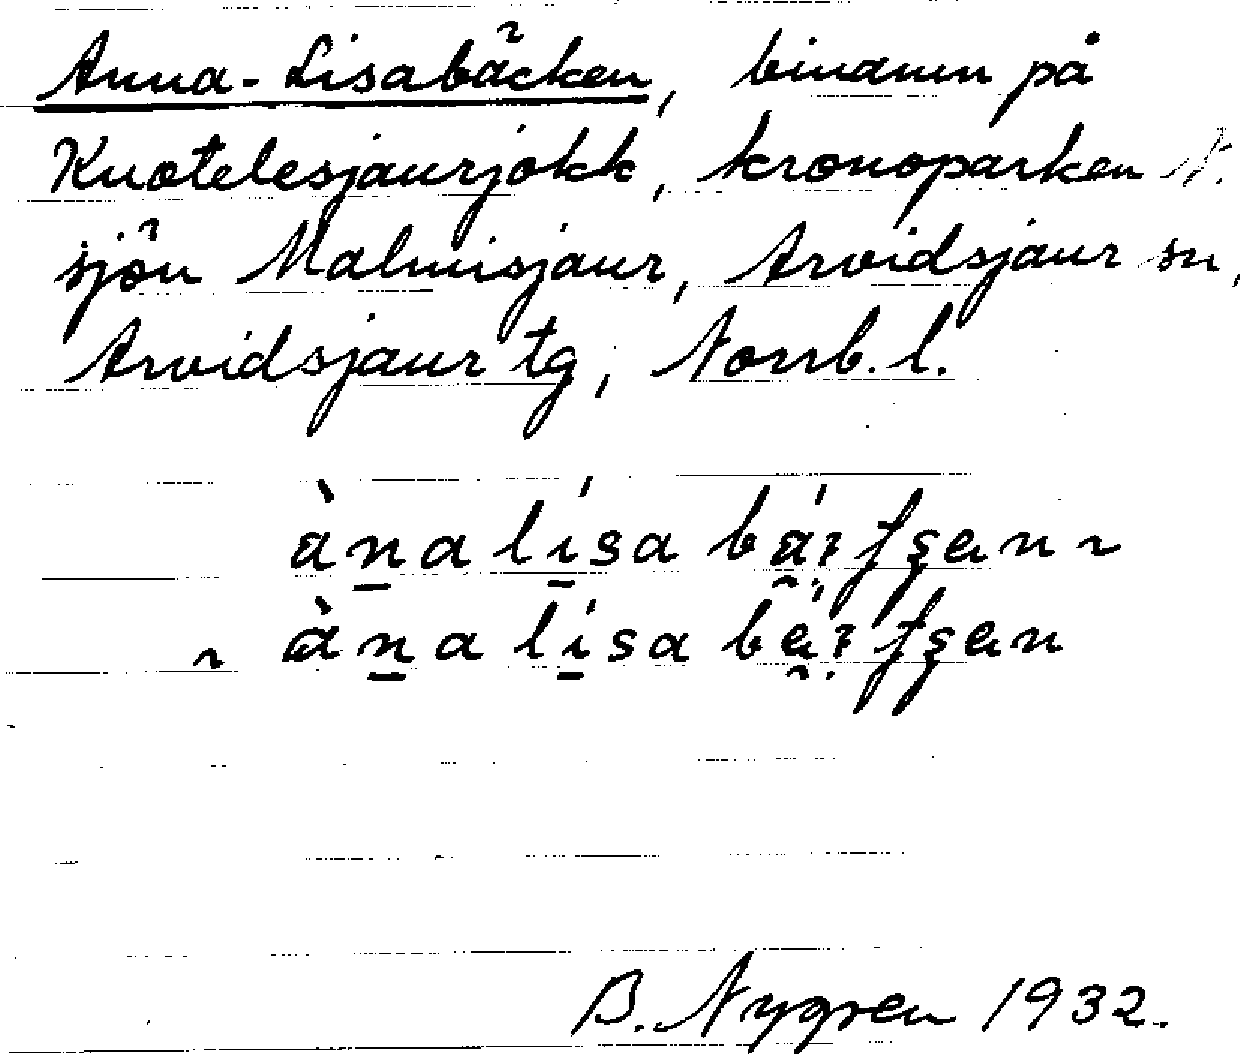 Anna-Lisabäcken, binamn på
Kuotelesjaurjokk, kronoparken N.
sjön Malmisjaur, Arvidsjaur sn,
Arvidsjaur tg, Norrb. l.
B. Nygren 1932.